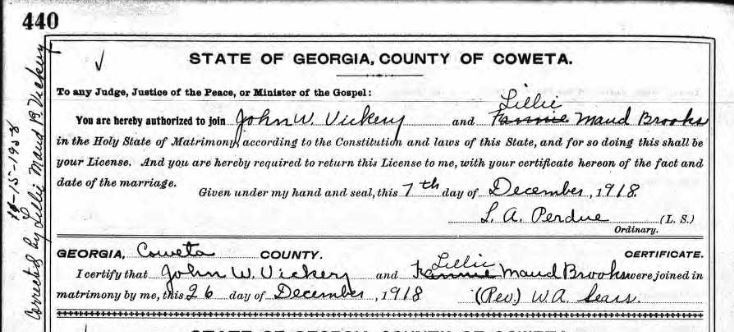 440
STATE OF GEORGIA, COUNTY OF COWETA.
To any Judge, Justice of the Peace, or Minister of the Gospel:
Lillie
You are hereby authorized to join John W. Vickery and Fannie Maud Brooks
in the Holy State of Matrimony, according to the Constitution and laws of this State, and for so doing this shall be
your License. And you are hereby required to return this License to me, with your certificate hereon of the fact and
date of the marriage.
Given under my hand and seal, this 7th day of December, 1918.
L. A. Perdue (L. S.)
Ordinary.
GEORGIA, Coweta COUNTY. CERTIFICATE.
Lillie
I certify that John W. Vickery and Fannie Maud Brooks were joined in
matrimony by me, this 26 day of December, 1918 (Rev.) W. A. Sears.
Corrected by Lillie Maud B. Vickery